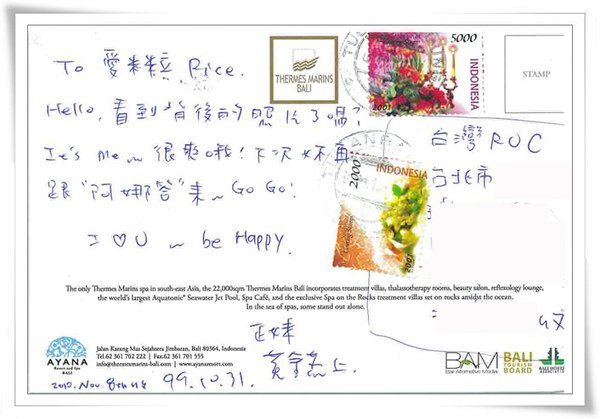 To 愛米粒 Rice.
Hello, 看到背後的照片了嗎?
It's Me~ 很爽哦! 下次妳再
跟"阿娜答"來~ Go Go!
I ♡ U ~ be Happy.
THERMES MARINS
BALI
5000
INDONESIA
2001
STAMP
INDONESIA
2000
2001
台灣 ROC
台北市
The only Thermes Marins spa in south-east Asia, the 22,000sqm Thermes Marins Bali incorporates treatment villas, thalassotherapy rooms, beauty salon, reflexology lounge,
the world's largest Aquatonic® Seawater Jet Pool, Spa Café, and the exclusive Spa on the Rocks treatment villas set on rocks amidst the ocean.
In the sea of spas, some stand out alone.
AYANA
Resort and Spa
BALI
Jalan Karang Mas Sejahtera Jimbaran, Bali 80364, Indonesia
Tel:62 361 702 222 | Fax:62 361 701 555
info@thermesmarins-bali.com | www.ayanaresort.com
2010. Nov.
99.10.31.
上
BAM
Bali Alternative Media
BALI
TOURISM
BOARD
BALI HOTELS
ASSOCIATION